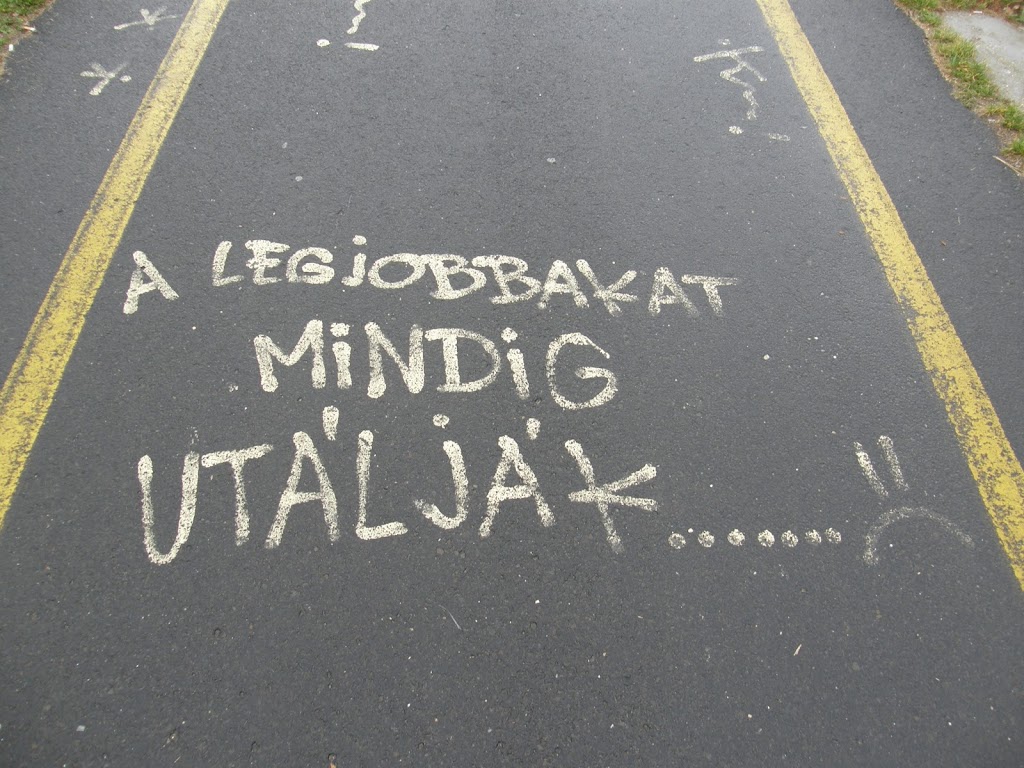 A LEGJOBBAKAT
MINDIG
UTÁLJÁK.......